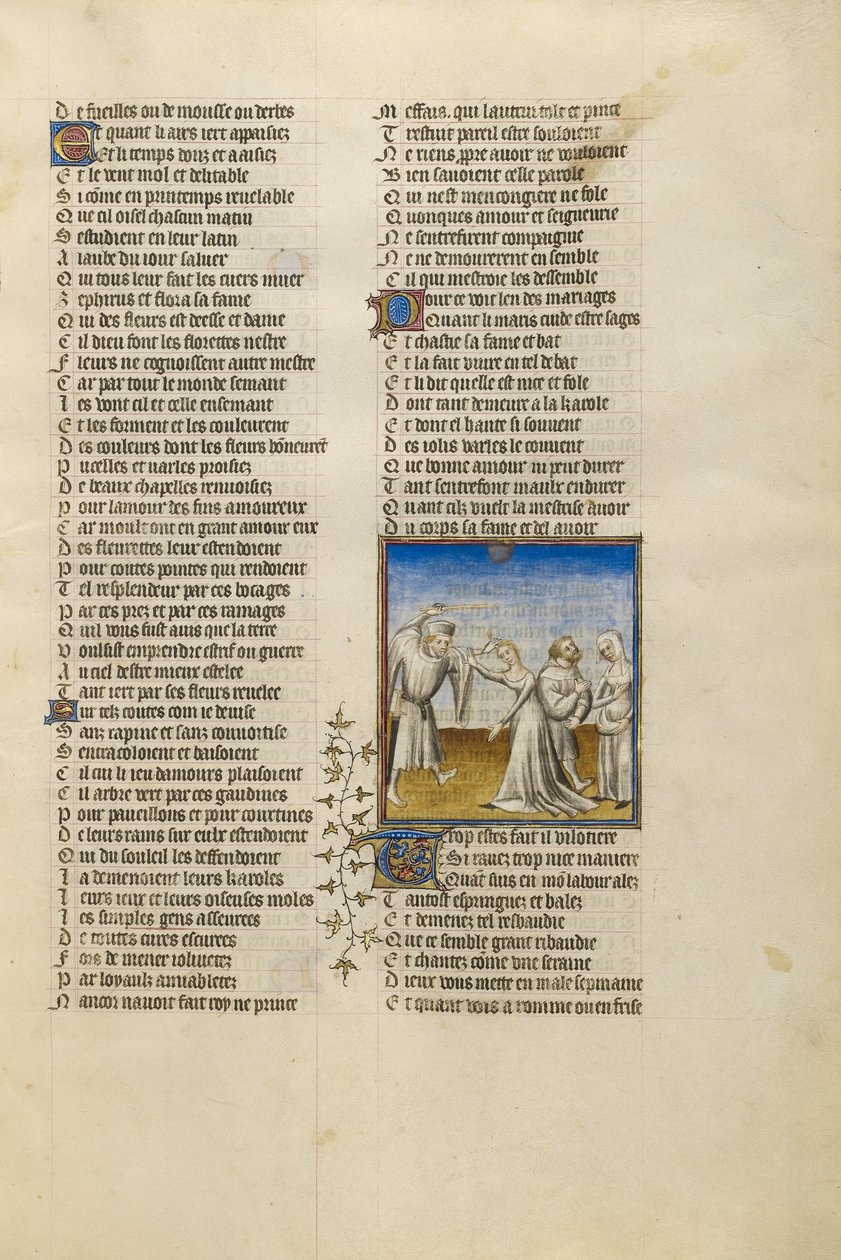 De fueilles ou de mousse ou derbes
Et quant li airs iert appaisiez
Et li temps doux et aaisiez
Et le vent mol et delitable
Si cõme en printemps revelable
Que cil oisel chascun matin
Sestudient en leur latin
A laube du iour saluer
Qui tous leur fait les cuers muer
Zephirus et flora sa fame
Qui des fleurs est deesse et dame
Cil dieu font les florettes nestre
Fleurs ne cognoissent autre mestre
Car par tout le monde semant
Les vont cil et celle ensemant
Et les forment et les couleurent
Des couleurs dont les fleurs hõneurẽt
Pucelles et varles proisiez
De beaux chapelles renvoisiez
Pour lamour des fins amoureux
Car moult ont en grant amour eux
Des fleurettes leur estendoient
Pour coutes pointes qui rendoient
Tel resplendeur par ces bocages
Par ces prez et par ces ramages
Quil vous fust auis que la terre
Voulsist emprendre estrif ou guerre
Au ciel destre mieux estelee
Tant iert par ses fleurs revelee
Sur telz coutes com ie deuise
Sanz rapine et sanz couuoitise
Sentracoloient et baisoient
Cil cui li ieu damours plaisoient
Cil arbre vert par ces gaudines
Pour paueillons et pour courtines
De leurs rains sur eulx estendoient
Qui du souleil les deffendoient
La demenoient leurs karoles
Leurs ieux et leurs oiseuses moles
Les simples gens asseurees
De toutes cures escurees
Fors de mener ioliuetez
Par loyaulx amiabletez
Nancor nauoit fait roy ne prince
Meffais. qui lautrui tolt et pince
Trestuit pareil estre souloient
Ne riens ꝓpre auoir ne vouloient
Bien sauoient celle parole
Qui nest mencongiere ne fole
Quonques amour et seigneurie
Ne sentrefirent compaignie
Ne ne demourerent en semble
Cil qui mestroie les dessemble
Pour ce voit len des mariages
Quant li maris cuide estre sages
Et chastie sa fame et bat
Et la fait viure en tel debat
Et li dit quelle est nice et fole
Dont tant demeure a la karole
Et dont el hante si souuent
Des iolis varles le couuent
Que bonne amour ni peut durer
Tant sentrefont maulx endurer
Quant cilz vuelt la mestrise auoir
Du corps sa fame et del auoir
Trop estes fait il vilotiere
Si rauez trop nice maniere
Quãt suis en mõ labour alez
Tantost espringuez et balez
Et demenez tel resbaudie
Que ce semble grant ribaudie
Et chantez cõme vne seraine
Dieux vous mette en male sepmaine
Et quant vois a romme ou en frise